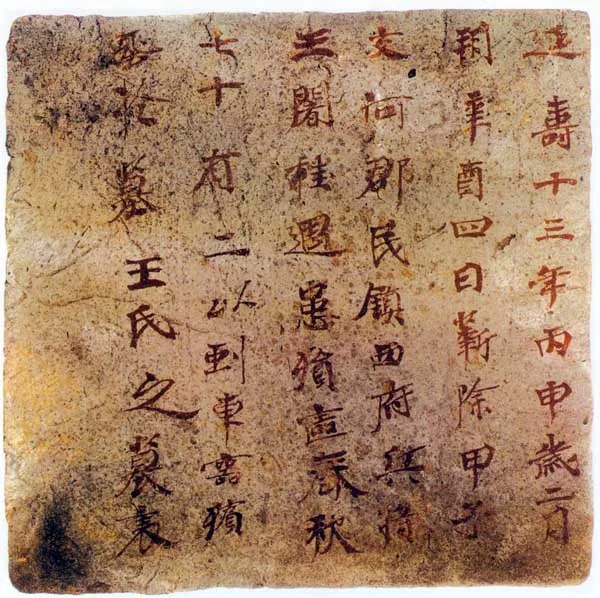 延壽十三年丙申歲二月
朔辛酉四日靳除甲子
交河郡民鎮西府兵將
王闍桂遇患殞喪春秋
七十有二以到車靈殯
葬於墓王氏之墓表